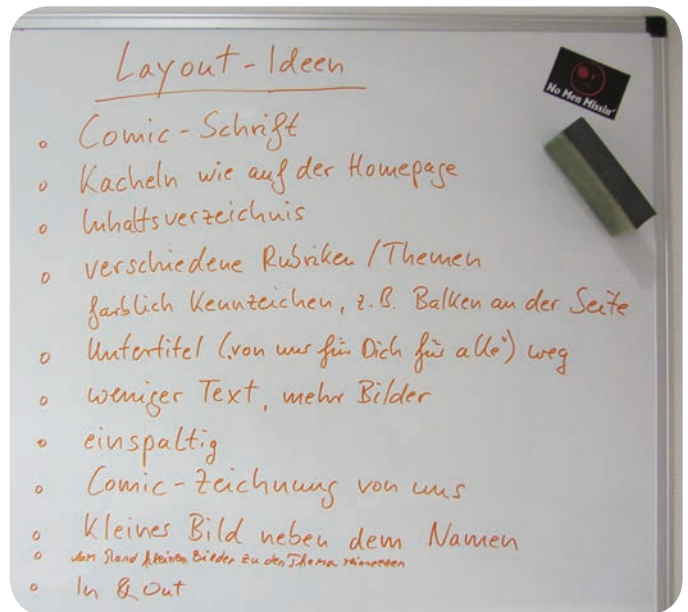 Layout-Ideen
No Men Missin'
o Comic-Schrift
o Kacheln wie auf der Homepage
o Inhaltsverzeichnis
o verschiedene Rubriken / Themen
farblich Kennzeichen, z.B. Balken an der Seite
o Untertitel („von uns für Dich für alle") weg
o weniger Text, mehr Bilder
o einspaltig
o Comic-Zeichnung von uns
o Kleines Bild neben dem Namen
o Rand kleinen Bilder zu den Thema
o In & Out